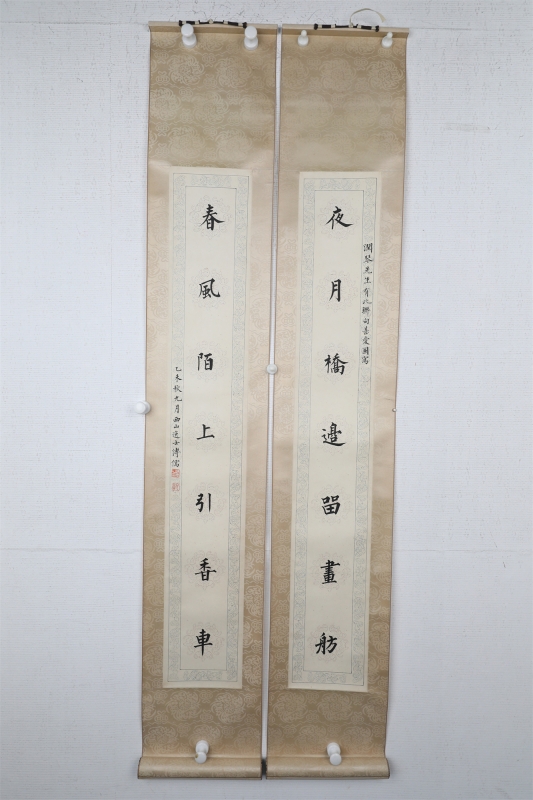 夜月橋邊畱畫舫
潤琴先生有此聯句喜愛圖寫
春風陌上引香車
乙未秋九月西山逸士溥儒